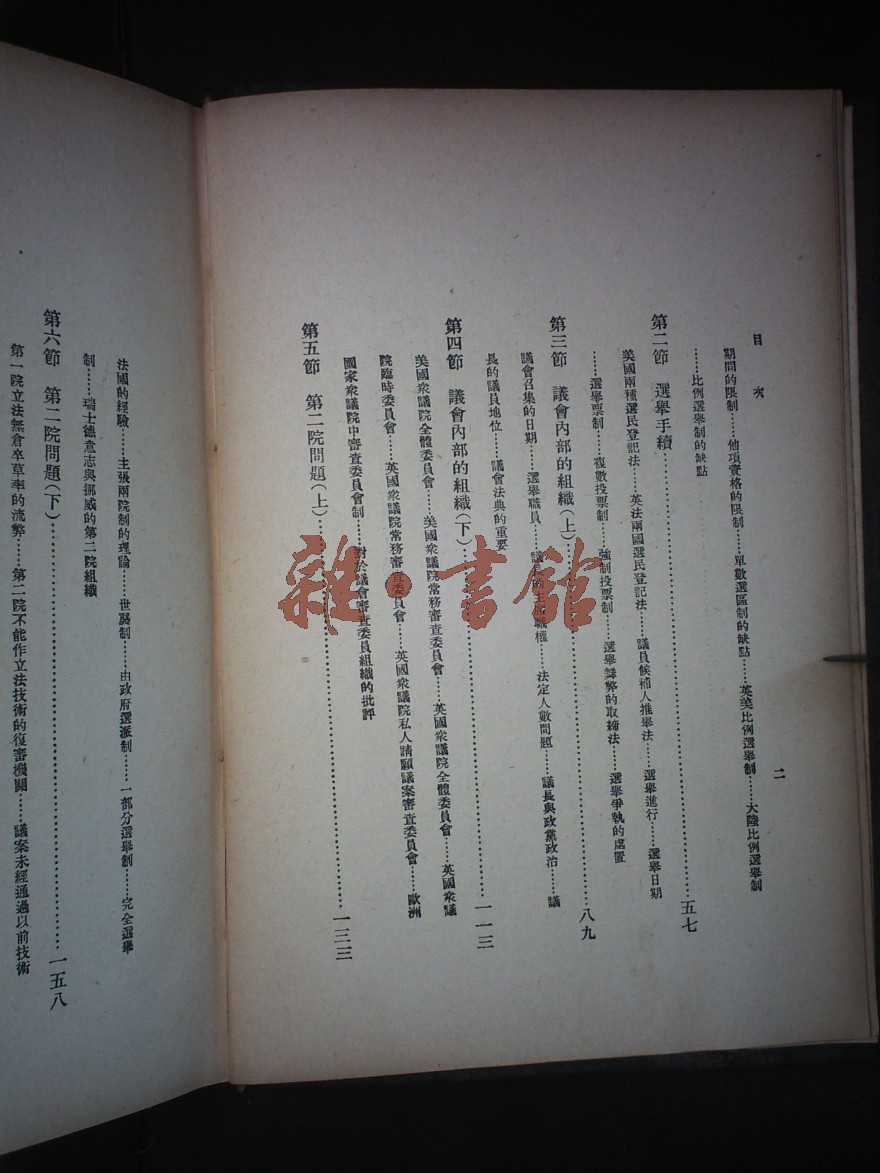 目次
二
期間的限制……他項資格的限制……單數選區制的缺點……英美比例選舉制……大陸比例選舉制
……比例選舉制的缺點
第二節 選舉手續……五七
美國兩種選民登記法……英法兩國選民登記法……議員候補人推舉法……選舉進行……選舉日期
……選舉票制……複數投票制……強制投票制……選舉舞弊的取締法……選舉爭執的處置
第三節 議會內部的組織(上)……八九
議會召集的日期……選舉職員……議長的職權……法定人數問題……議長與政黨政治……議
長的議員地位……議會法典的重要
第四節 議會內部的組織(下)……一一三
美國衆議院全體委員會……美國衆議院常務審査委員會……英國衆議院全體委員會……英國衆議
院臨時委員會……英國衆議院常務審査委員會……英國衆議院私人請願議案審査委員會……歐洲
國家衆議院中審査委員會制……對於議會審査委員組織的批評
第五節 第二院問題(上)……一三三
法國的經驗……主張兩院制的理論……世襲制……由政府選派制……一部分選舉制……完全選舉
制……瑞士德意志與挪威的第二院組織
第六節 第二院問題(下)……一五八
第一院立法無倉卒草率的流弊……第二院不能作立法技術的復審機關……議案未經通過以前技術
雜·書館